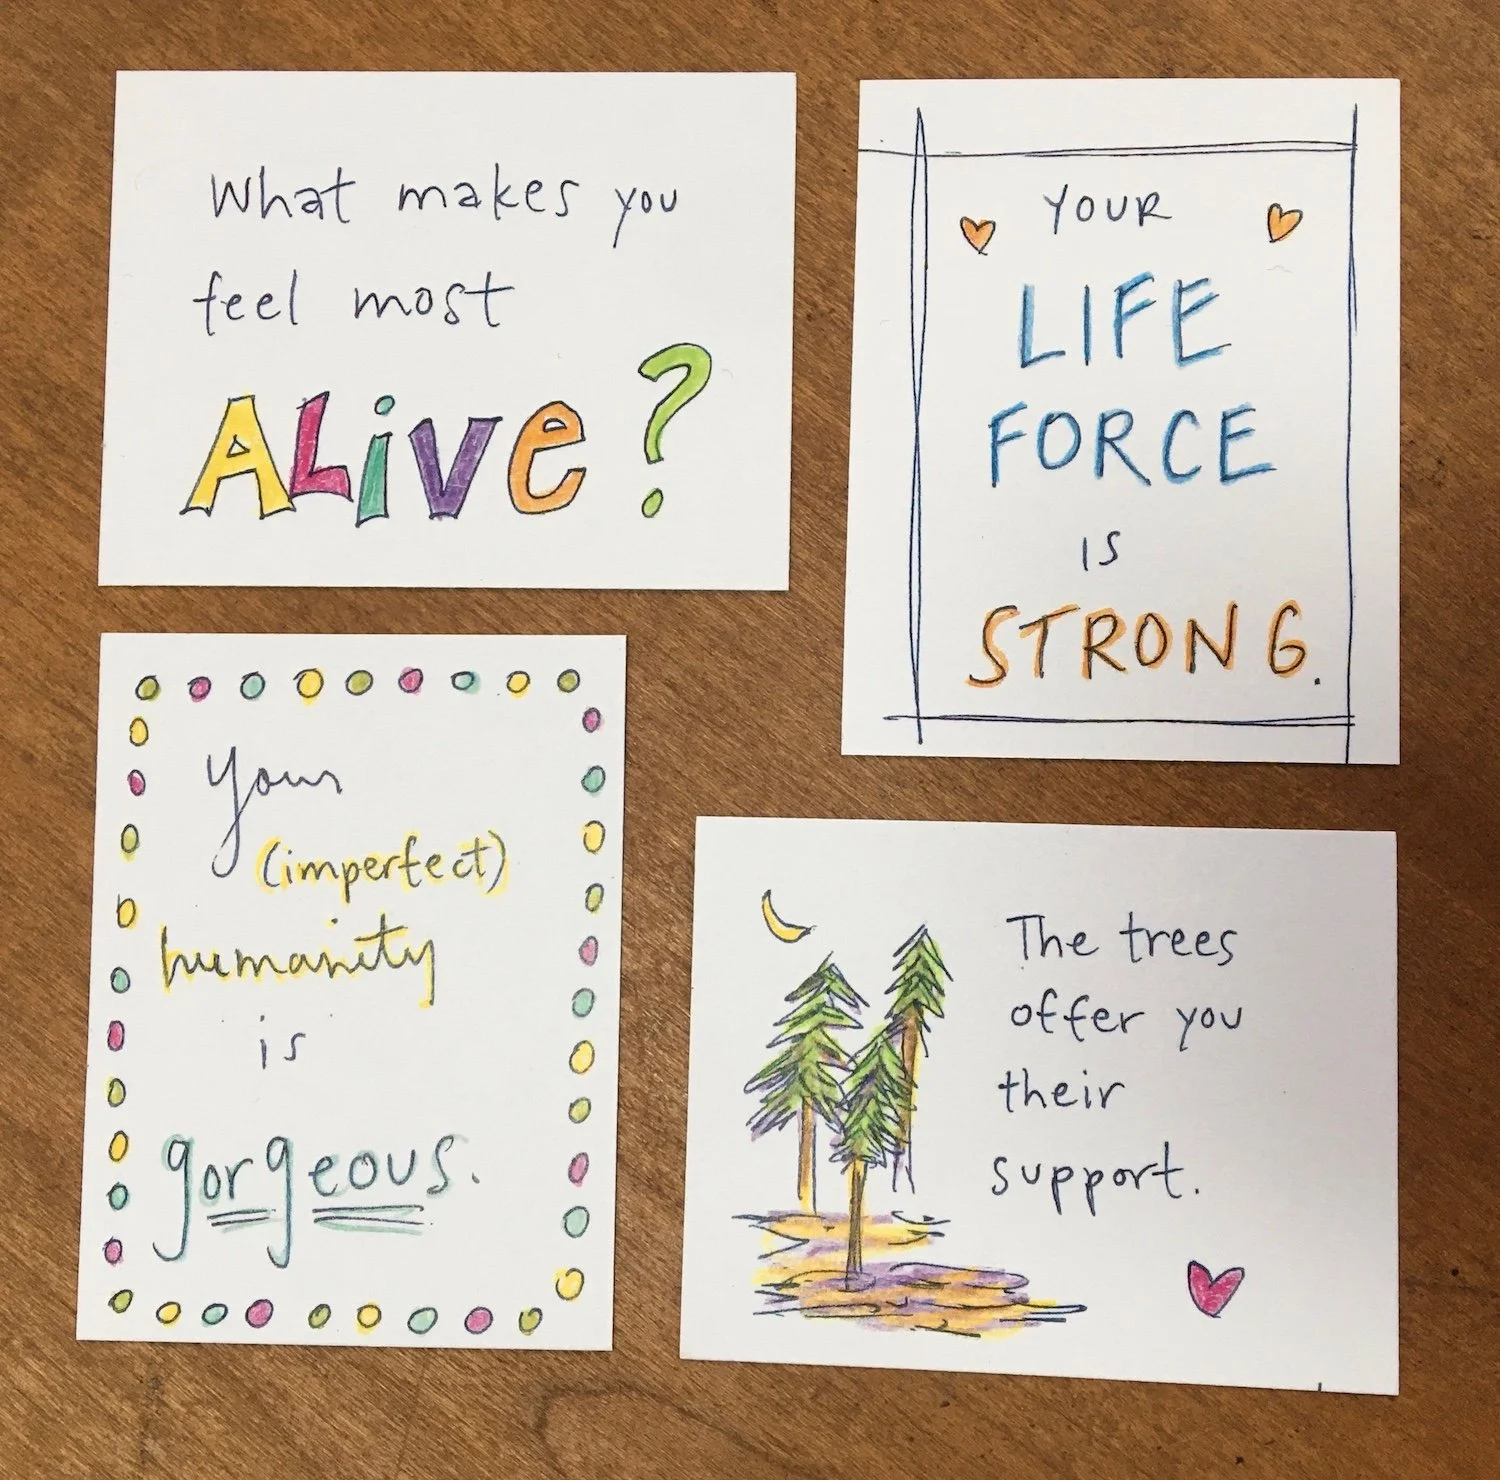 What makes you
feel most
ALiVe?
YOUR
LIFE
FORCE
IS
STRONG.
Your
(imperfect)
humanity
is
gorgeous.
The trees
offer you
their
support.